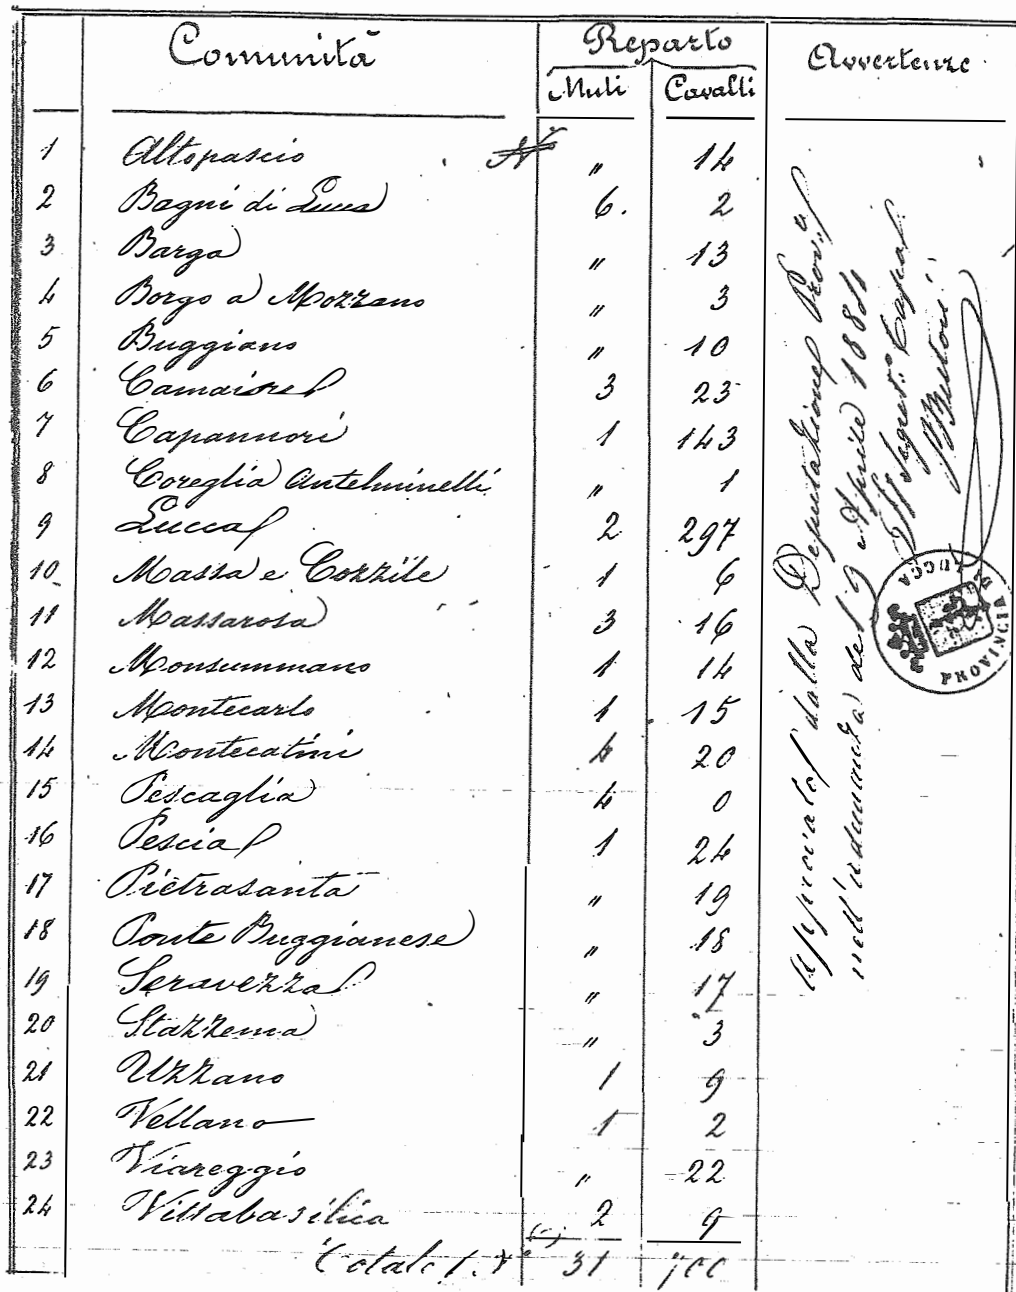 Comunità Reparto Avvertenze
Muli Cavalli
1 Altopascio N° " 14
2 Bagni di Lucca 6. 2
3 Barga " 13
4 Borgo a Mozzano " 3
5 Buggiano " 10
6 Camaiore 3 23
7 Capannori 1 143
8 Coreglia Antelminelli " 1
9 Lucca 2 297
10 Massa e Cozzile 1 6
11 Massarosa 3 16
12 Monsummano 1 14
13 Montecarlo 1 15
14 Montecatini 4 20
15 Pescaglia 4 0
16 Pescia 1 24
17 Pietrasanta " 19
18 Ponte Buggianese " 18
19 Seravezza " 17
20 Stazzema " 3
21 Uzzano 1 9
22 Vellano 1 2
23 Viareggio " 22
24 Villabasilica 2 9
Totale N° 31 700
Approvato dalla Deputazione Prov.
nell'adunanza del 9 Aprile 1884
Il Segret.° Capo
PROVINCIA DI LUCCA